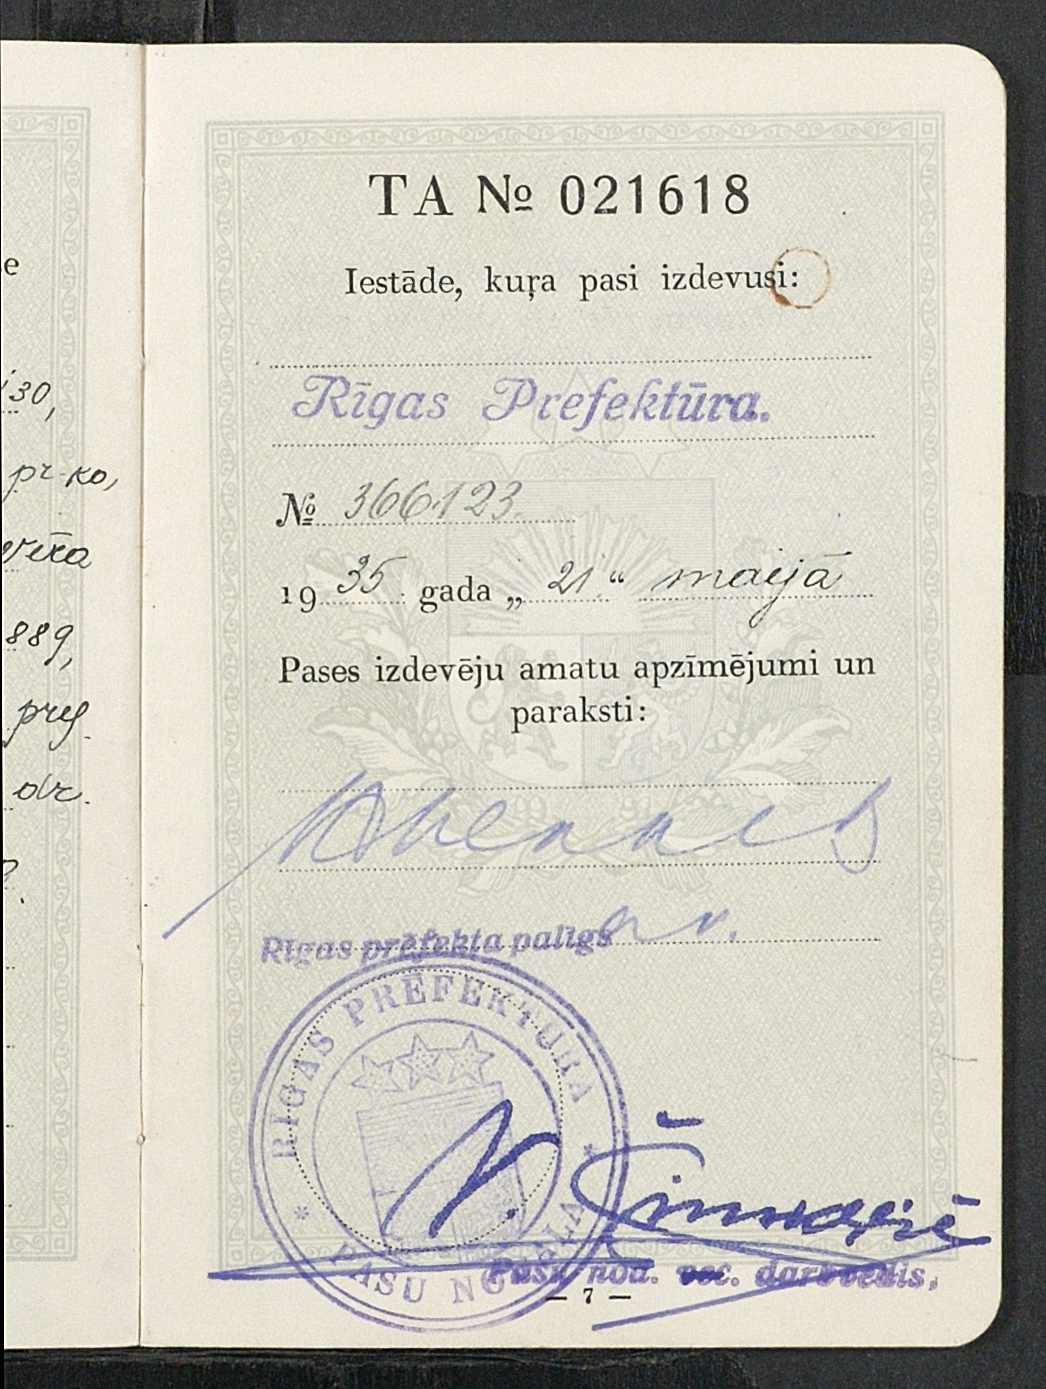 e
30,
pr-ko,
vīra
889,
prel.
dr.
TA № 021618
Iestāde, kuŗa pasi izdevusi:
Rīgas Prefektūra.
№ 366123
1935 gada „21“ maijā
Pases izdevēju amatu apzīmējumi un
paraksti:
Rīgas prēfekta palīgs
RĪGAS PRĒFEKTŪRA
PASU NODAĻA
Pasu nod. vec. darbvedis.
— 7 —